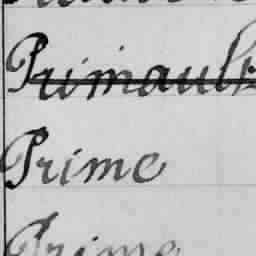 Primault
Prime
Prime